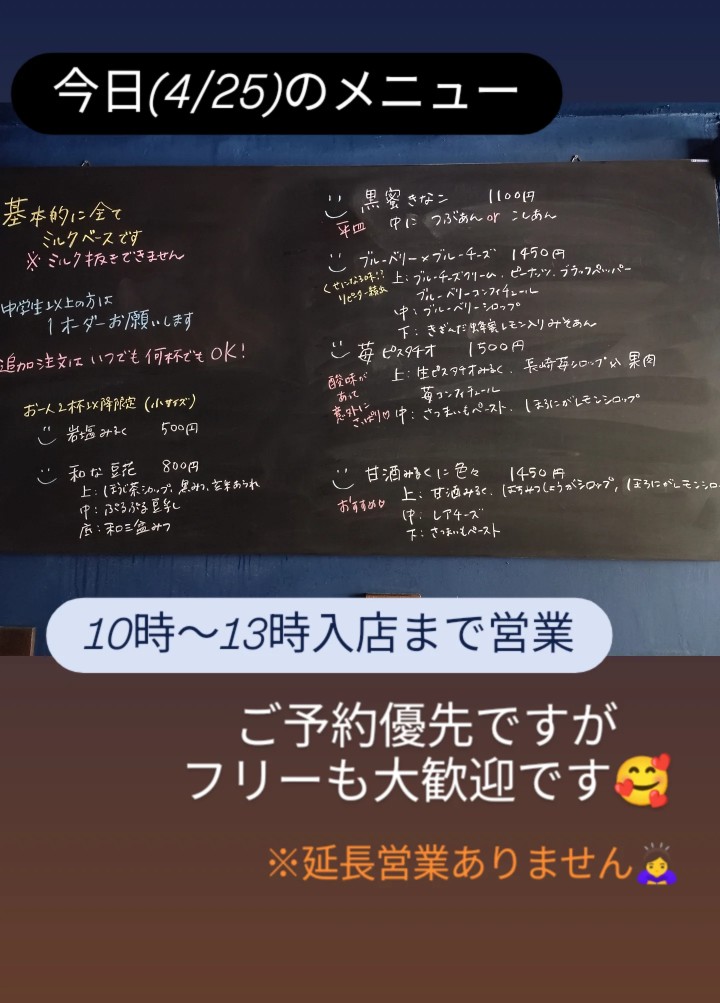 今日(4/25)のメニュー
基本的に全て
ミルクベースです
※ミルク抜きできません
中学生以上の方は
1オーダーお願いします
追加注文は いつでも 何杯でも OK!
お一人2杯以降限定 (小サイズ)
岩塩みるく 500円
和な豆花 800円
上:ほうじ茶シロップ、黒みつ、玄米あられ
中:ぷるぷる豆乳
底:和三盆みつ
黒蜜きなこ 1100円
平皿 中に つぶあん or こしあん
ブルーベリー×ブルーチーズ 1450円
くせになる味!?
リピーター続出
上:ブルーチーズクリーム、ピーナッツ、ブラックペッパー
ブルーベリーコンフィチュール
中:ブルーベリーシロップ
下:きざんだ蜂蜜レモン入りみそあん
苺ピスタチオ 1500円
酸味が
あって
意外に
さっぱり♡
上:生ピスタチオみるく、長崎苺シロップ 果肉
苺コンフィチュール
中:さつまいもペースト、ほろにがレモンシロップ
甘酒みるくに色々 1450円
おすすめ♡
上:甘酒みるく、はちみつしょうがシロップ、ほろにがレモンシロ
中:レアチーズ
下:さつまいもペースト
10時〜13時入店まで営業
ご予約優先ですが
フリーも大歓迎です🥰
※延長営業ありません🙇‍♀️